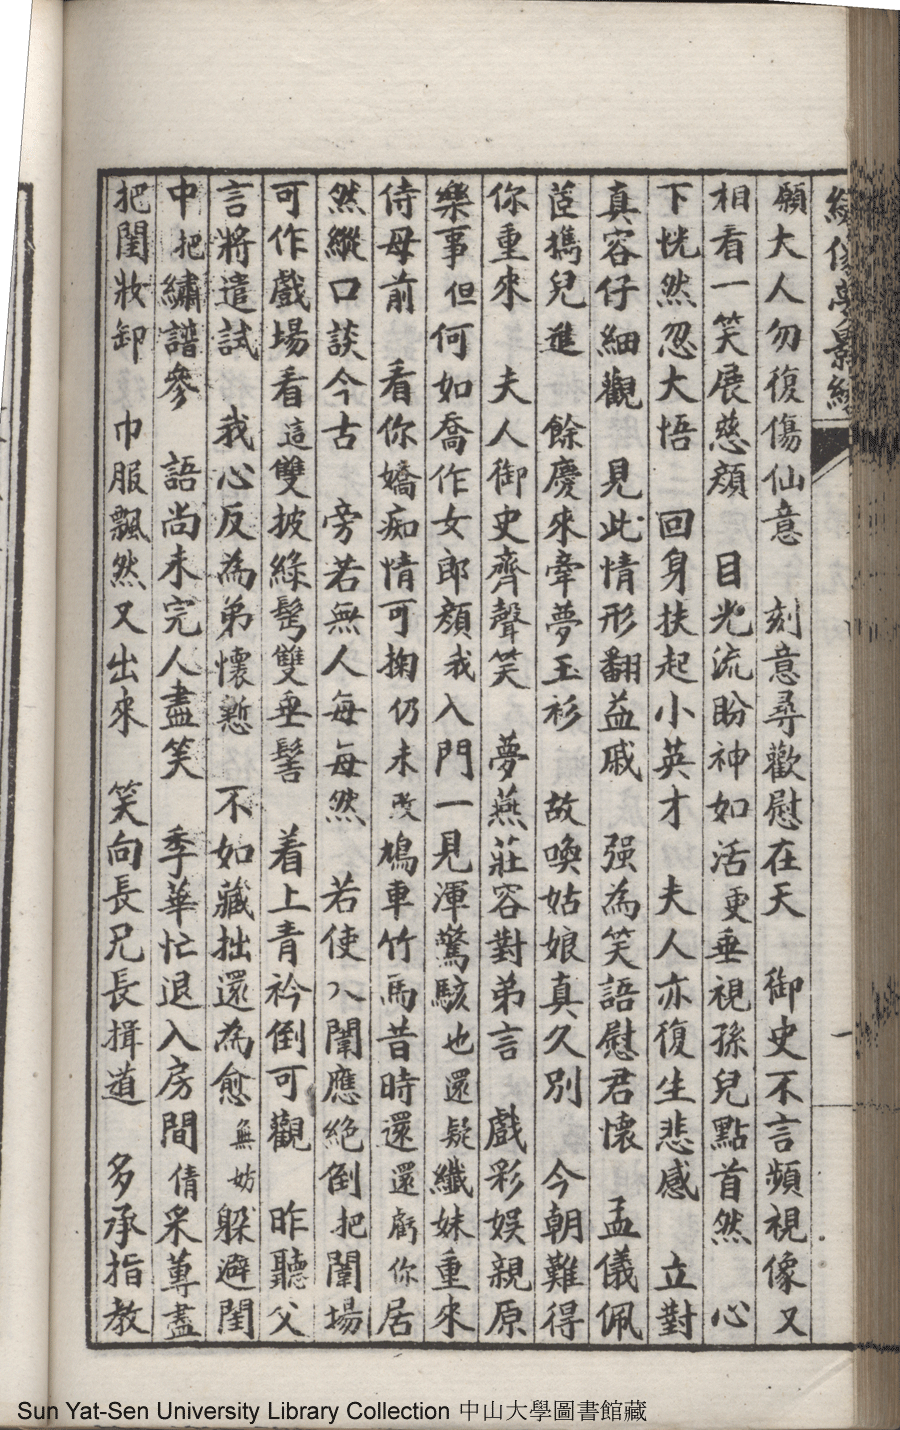 願大人勿復傷仙意　刻意尋歡慰在天　御史不言頻視像又
相看一笑展慈顔　目光流盼神如活更垂視孫兒點首然　心
下恍然忽大悟　回身扶起小英才　夫人亦復生悲感　立對
真容仔細觀　見此情形翻益戚　强為笑語慰君懷　孟儀佩
茝擕兒進　餘慶來牽夢玉衫　故喚姑娘真久別　今朝難得
你重來　夫人御史齊聲笑　夢燕莊容對弟言　戲彩娱親原
樂事但何如喬作女郎顔我入門一見渾驚駭也還疑纖妹重來
侍母前　看你嬌痴情可掬仍未改鳩車竹馬昔時還還虧你居
然縱口談今古　旁若無人每每然　若使入闈應絶倒把闈場
可作戲場看這雙披綠鬓雙垂髻　着上青衿倒可觀　昨聽父
言將遣試　我心反為弟懷慙　不如藏拙還為愈無妨躲避閨
中把繡譜參　語尚未完人盡笑　季華忙退入房間倩采蓴盡
把閨妝卸　巾服飄然又出來　笑向長兄長揖道　多承指教
Sun Yat-Sen University Library Collection 中山大學圖書館藏